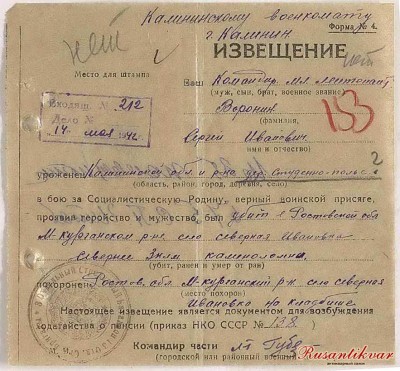 Калининскому военкомату
г. Калинин
Форма № 4.
нет
ИЗВЕЩЕНИЕ
нет
Место для штампа
Ваш Командир Мл лейтенант
(муж, сын, брат, военное звание)
Входящ. № 212
Дело №
14 мая 1942
Воронин
(фамилия,
183
Сергей Иванович
имя и отчество)
уроженец Калининской обл и р-на дер.
2
(область, район, город, деревня, село)
в бою за Социалистическую Родину, верный воинской присяге,
проявив геройство и мужество, был убит в Ростовской обл
М-Курганском р-не село северная Ивановка
Севернее 3 км каменоломни
(убит, ранен и умер от ран)
похоронен Ростов. обл М-Курганский р-н село северная
(место похорон)
Ивановка на кладбище
Настоящее извещение является документом для возбуждения
ходатайства о пенсии (приказ НКО СССР № 138.)
Командир части
(городской или районный военный
Rusantikvar